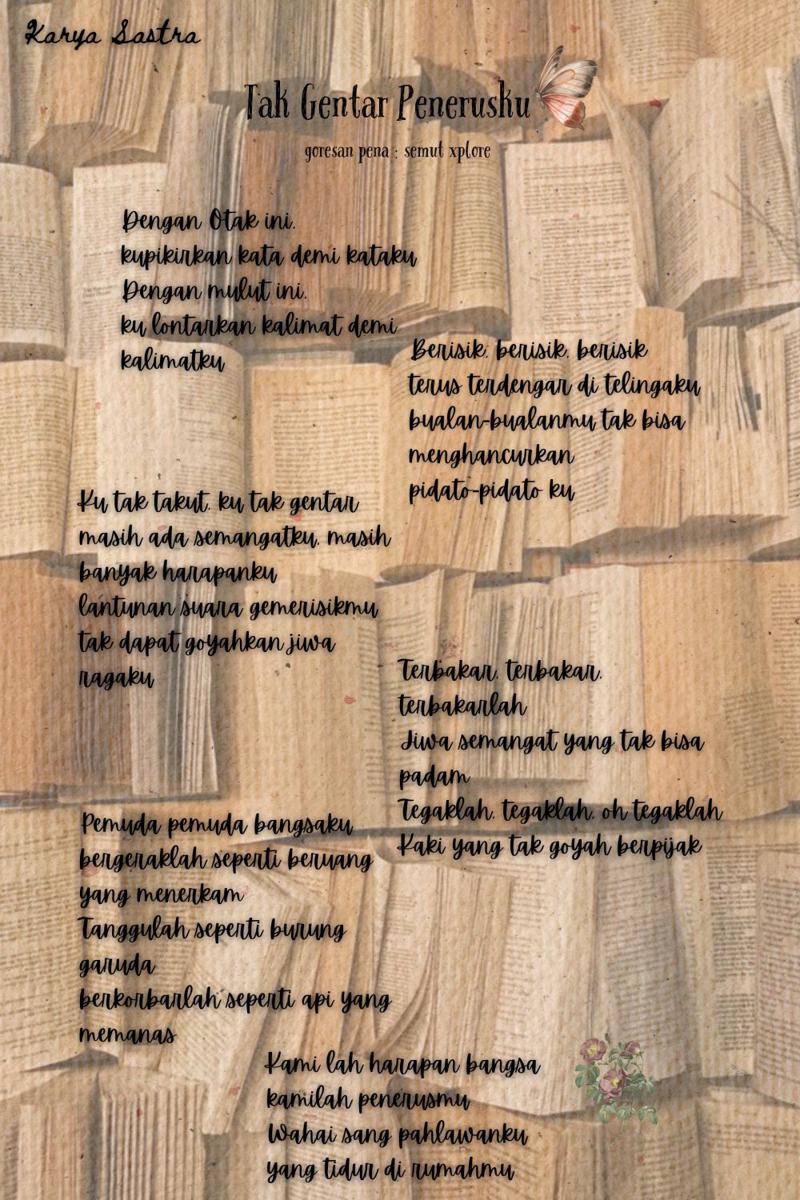 Karya Sastra
Tak Gentar Penerusku
goresan pena : semut xplore
Dengan Otak ini,
kupikirkan kata demi kataku
Dengan mulut ini,
ku lontarkan kalimat demi
kalimatku
Berisik, berisik, berisik
terus terdengar di telingaku
bualan-bualanmu tak bisa
menghancurkan
pidato-pidato ku
Ku tak takut, ku tak gentar
masih ada semangatku, masih
banyak harapanku
lantunan suara gemerisikmu
tak dapat goyahkan jiwa
ragaku
Terbakar, terbakar,
terbakarlah
Jiwa semangat yang tak bisa
padam
Tegaklah, tegaklah, oh tegaklah
Kaki yang tak goyah berpijak
Pemuda pemuda bangsaku
bergeraklah seperti beruang
yang menerkam
Tanggulah seperti burung
garuda
berkorbarlah seperti api yang
memanas
Kami lah harapan bangsa
kamilah penerusmu
Wahai sang pahlawanku
yang tidur di rumahmu